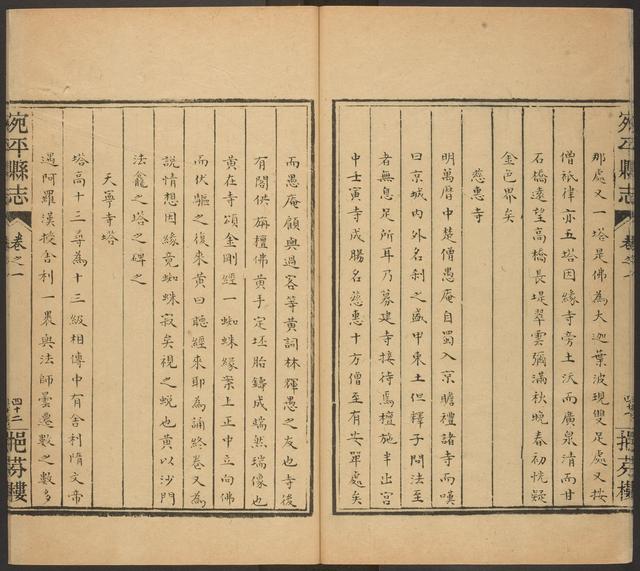 那處又一塔是佛為大迦葉波現雙足處又按
僧祇律亦五塔因緣寺旁土沃而廣泉清而甘
石橋遠望高橋長堤翠雲彌滿秋晚春初恍疑
金色界矣
慈惠寺
明萬曆中楚僧愚庵自蜀入京瞻禮諸寺而嘆
曰京城內外名剎之盛甲東土但釋子問法至
者無息足所耳乃募建寺接待焉檀施半出宮
中壬寅寺成賜名慈惠十方僧至有安單處矣
宛平縣志
卷之一
四十二
挹芬樓
而愚庵顧與過客等黃詞林輝愚之友也寺後
有閣供旃檀佛黃手定坯胎鑄成端然瑞像也
黃在寺頌金剛經一蜘蛛緣案上正中立向佛
而伏驅之復來黃曰聽經來耶為誦終卷又為
說情想因緣竟蜘蛛寂矣視之蛻也黃以沙門
法龕之塔之碑之
天寧寺塔
塔高十三尋為十三級相傳中有舍利隋文帝
遇阿羅漢授舍利一裹與法師曇遷數之數多